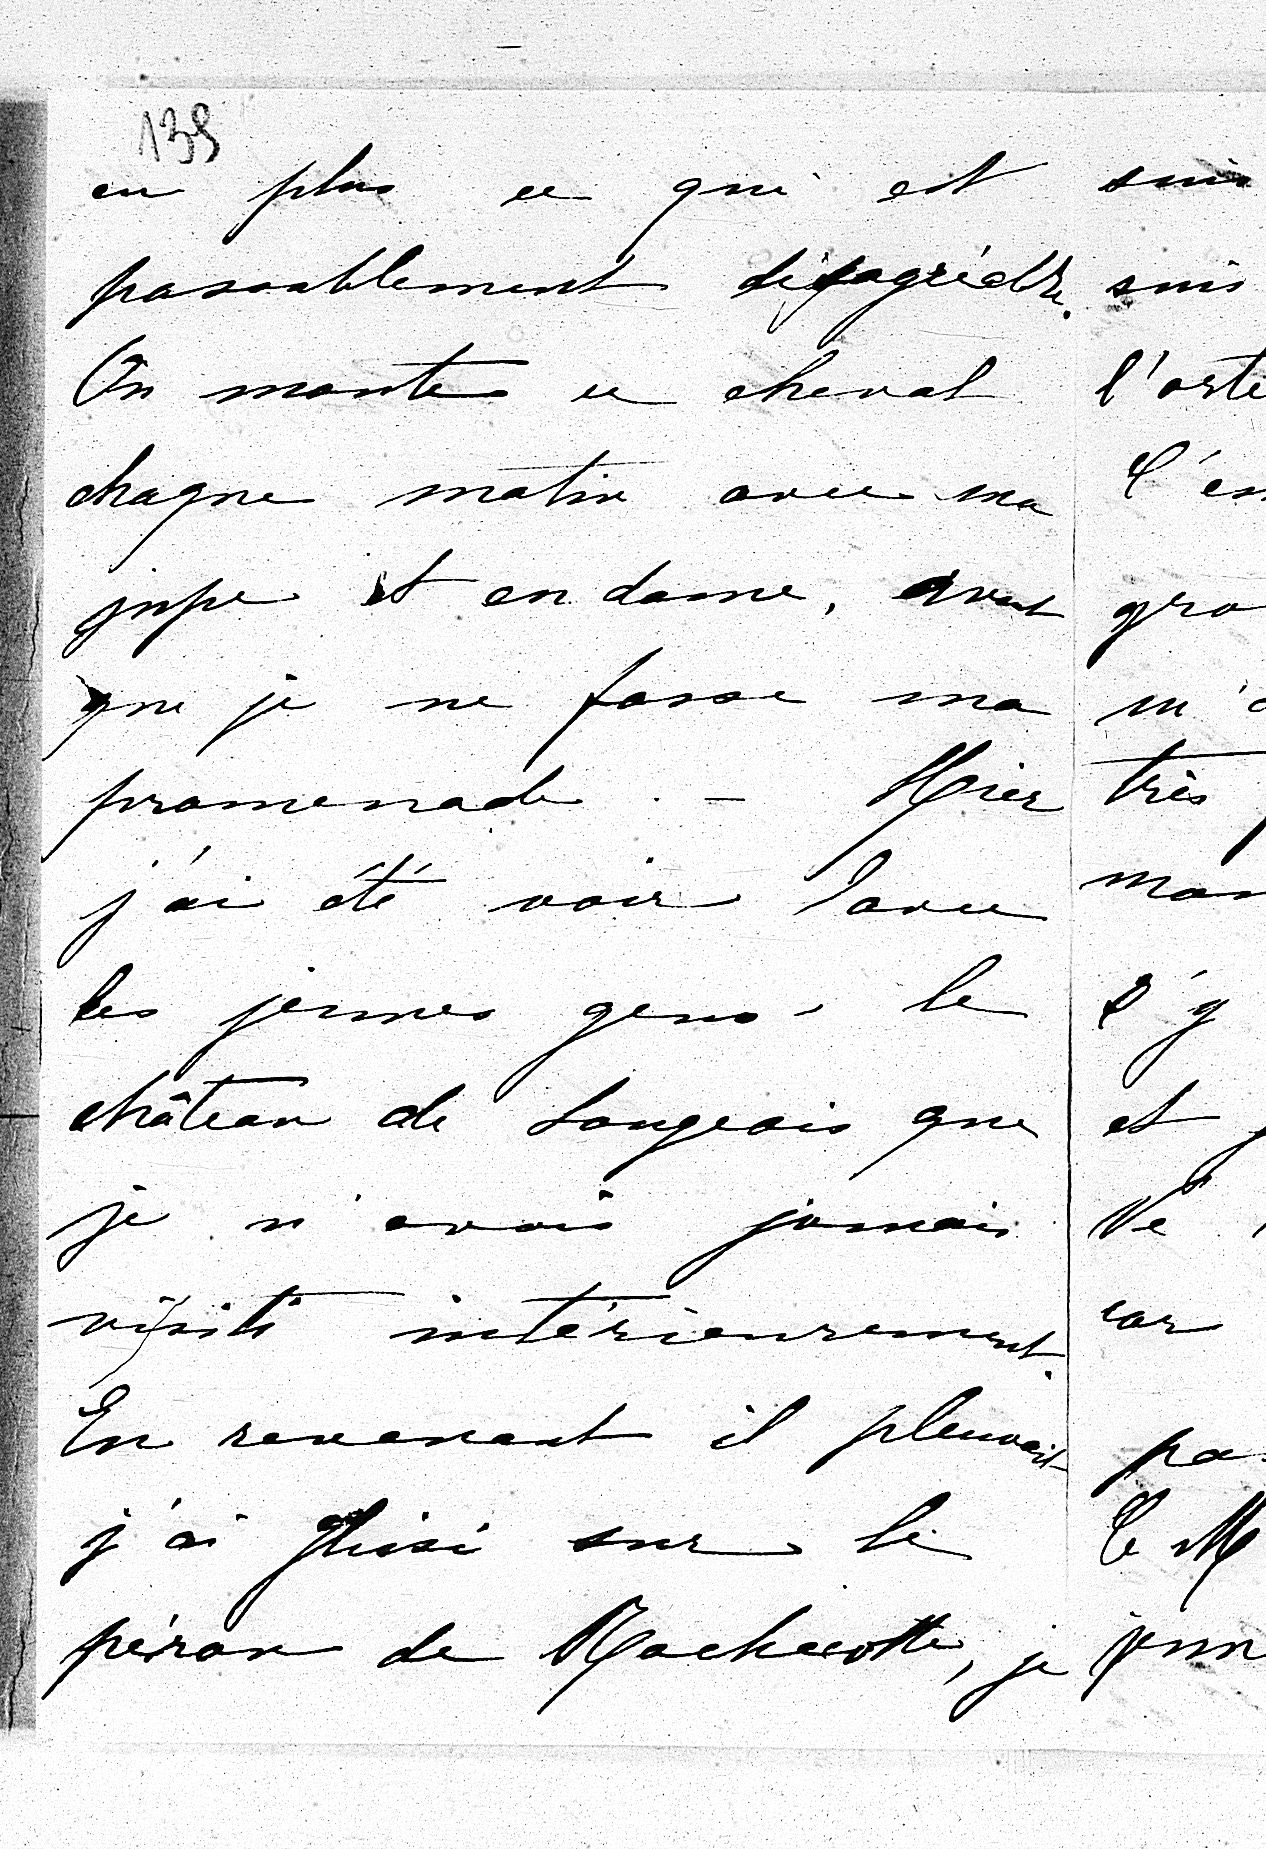 138
en plus ce qui est
passablement désagréable.
On monte ce cheval
chaque matin avec ma
jupe et en dame, avant
que je ne fasse ma
promenade. - Hier
j'ai été voir avec
les jeunes gens le
château de Langeais que
je n'avais jamais
visité intérieurement.
En revenant il pleuvait
j'ai glissé sur le
péron de Rochecotte, je
suis
suis
l'orte
C'es
gro
m'a
très
mon
s'y
et
Ve
car
pa
C M
jeun